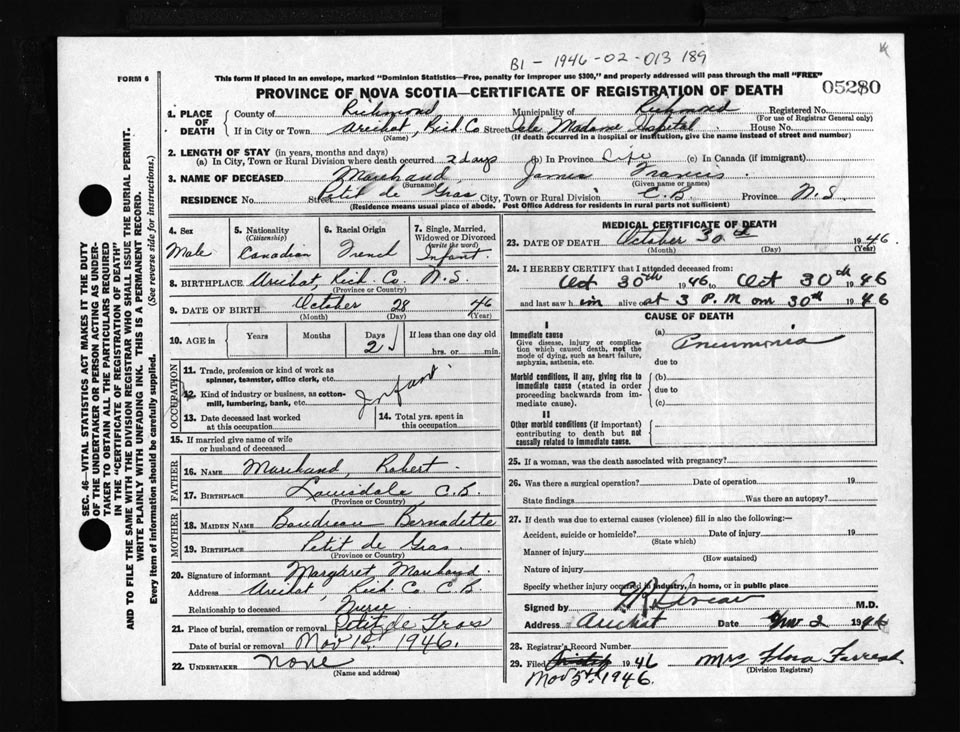 B1 - 1946-02-013 189
FORM 6
This form if placed in an envelope, marked "Dominion Statistics—Free, penalty for improper use $300," and properly addressed will pass through the mail "FREE"
PROVINCE OF NOVA SCOTIA—CERTIFICATE OF REGISTRATION OF DEATH
05280
1. PLACE OF DEATH
County of Richmond Municipality of Richmond Registered No.
(For use of Registrar General only)
If in City or Town Arichat, Rich. Co Street Isle Madame Hospital House No.
(Name) (If death occurred in a hospital or institution, give the name instead of street and number)
2. LENGTH OF STAY (in years, months and days)
(a) In City, Town or Rural Division where death occurred 2 days (b) In Province Life (c) In Canada (if immigrant)
3. NAME OF DECEASED Marchand James Francis
(Surname) (Given name or names)
RESIDENCE No. Street Petit de Gras City, Town or Rural Division C.B. Province N.S.
(Residence means usual place of abode. Post Office Address for residents in rural parts not sufficient)
4. Sex
Male
5. Nationality
(Citizenship)
Canadian
6. Racial Origin
French
7. Single, Married, Widowed or Divorced
(write the word)
Infant
8. BIRTHPLACE Arichat, Rich. Co. N.S.
(Province or Country)
9. DATE OF BIRTH October 28 46
(Month) (Day) (Year)
10. AGE in Years Months Days If less than one day old
2 hrs. or min.
OCCUPATION
11. Trade, profession or kind of work as spinner, teamster, office clerk, etc.
12. Kind of industry or business, as cotton-mill, lumbering, bank, etc.
Infant
13. Date deceased last worked at this occupation
14. Total yrs. spent in this occupation
15. If married give name of wife or husband of deceased
FATHER
16. NAME Marchand Robert
17. BIRTHPLACE Louisdale, C.B.
(Province or Country)
MOTHER
18. MAIDEN NAME Boudreau Bernadette
19. BIRTHPLACE Petit de Gras
(Province or Country)
20. Signature of informant Margaret Marchand
Address Arichat, Rich. Co. C.B.
Relationship to deceased Nurse
21. Place of burial, cremation or removal Petit de Gras
Date of burial or removal Nov 1st, 1946.
22. UNDERTAKER none
(Name and address)
MEDICAL CERTIFICATE OF DEATH
23. DATE OF DEATH October 30th 1946.
(Month) (Day) (Year)
24. I HEREBY CERTIFY that I attended deceased from:
Oct 30th 1946 to Oct 30th 1946
and last saw him alive on at 3 P.M on 30th 1946
CAUSE OF DEATH
I
Immediate cause
Give disease, injury or complication which caused death, not the mode of dying, such as heart failure, asphyxia, asthenia, etc.
(a) Pneumonia
due to
Morbid conditions, if any, giving rise to immediate cause (stated in order proceeding backwards from immediate cause).
(b)
due to
(c)
II
Other morbid conditions (if important) contributing to death but not causally related to immediate cause.
25. If a woman, was the death associated with pregnancy?
26. Was there a surgical operation? Date of operation 19
State findings Was there an autopsy?
27. If death was due to external causes (violence) fill in also the following:—
Accident, suicide or homicide? Date of injury 19
(State which)
Manner of injury
(How sustained)
Nature of injury
Specify whether injury occurred in industry, in home, or in public place
Signed by M.D.
Address Arichat Date Nov 2 1946
28. Registrar's Record Number
29. Filed 1946 Mrs Flora
Nov 5th 1946.
(Division Registrar)
SEC. 46—VITAL STATISTICS ACT MAKES IT THE DUTY
OF THE UNDERTAKER OR PERSON ACTING AS UNDER-
TAKER TO OBTAIN ALL THE PARTICULARS REQUIRED
IN THE "CERTIFICATE OF REGISTRATION OF DEATH"
AND TO FILE THE SAME WITH THE DIVISION REGISTRAR WHO SHALL ISSUE THE BURIAL PERMIT.
WRITE PLAINLY WITH UNFADING INK. THIS IS A PERMANENT RECORD.
Every item of information should be carefully supplied. (See reverse side for instructions.)